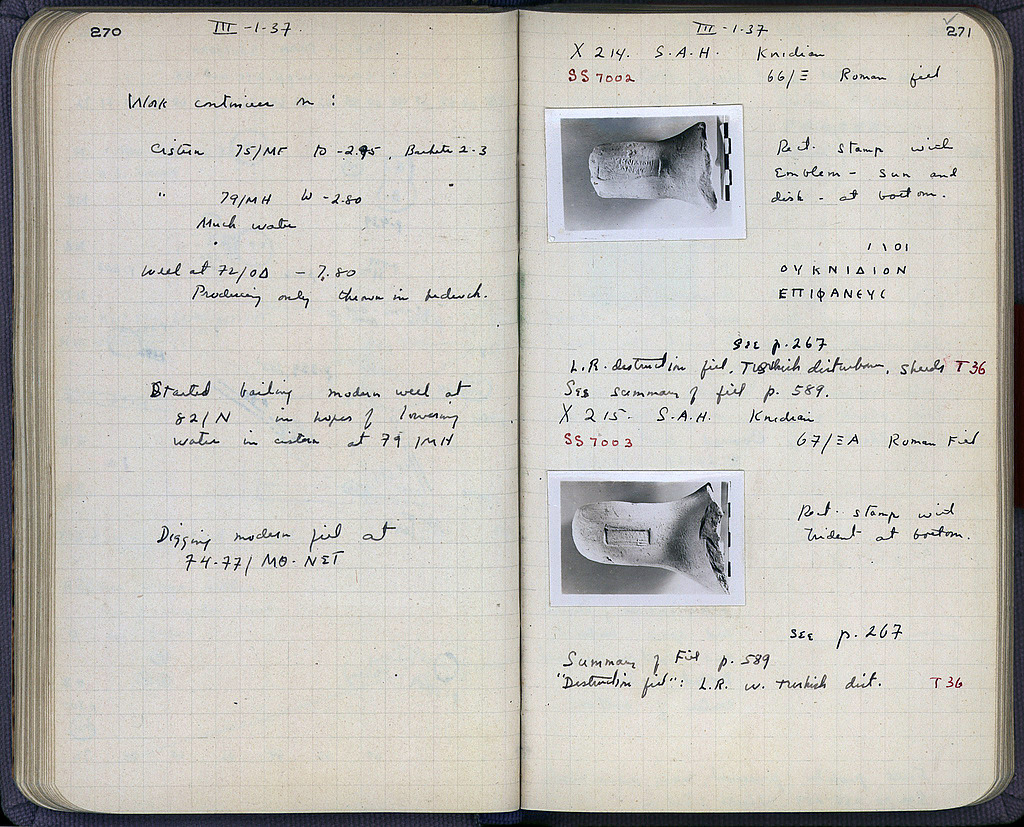 270
III-1-37.
Work continues in :
Cistern 75/ME to -2.95, Baskets 2-3
" 79/MH W -2.80
Much water
Well at 72/ΟΔ - 7.80
Producing only thrown in bedrock.
Started bailing modern well at
82/N in hopes of lowering
water in cistern at 79/MH
Digging modern fill at
74-77/ΜΘ-ΝΣΤ
III-1-37
271
X 214. S.A.H. Knidian
SS 7002
66/Ξ Roman fill
Rect. stamp with
Emblem - sun and
disk - at bottom.
ΟΥΚΝΙΔΙΟΝ
ΕΠΙΦΑΝΕΥC
See p.267
L.R. destruction fill, Turkish disturban, sherds T 36
See summary of fill p. 589.
X 215. S.A.H. Knidian
SS 7003
67/ΞΑ Roman Fill
Rect. stamp with
trident at bottom.
see p. 267
Summary of Fill p. 589
"Destruction fill": L.R. w. Turkish dist. T 36